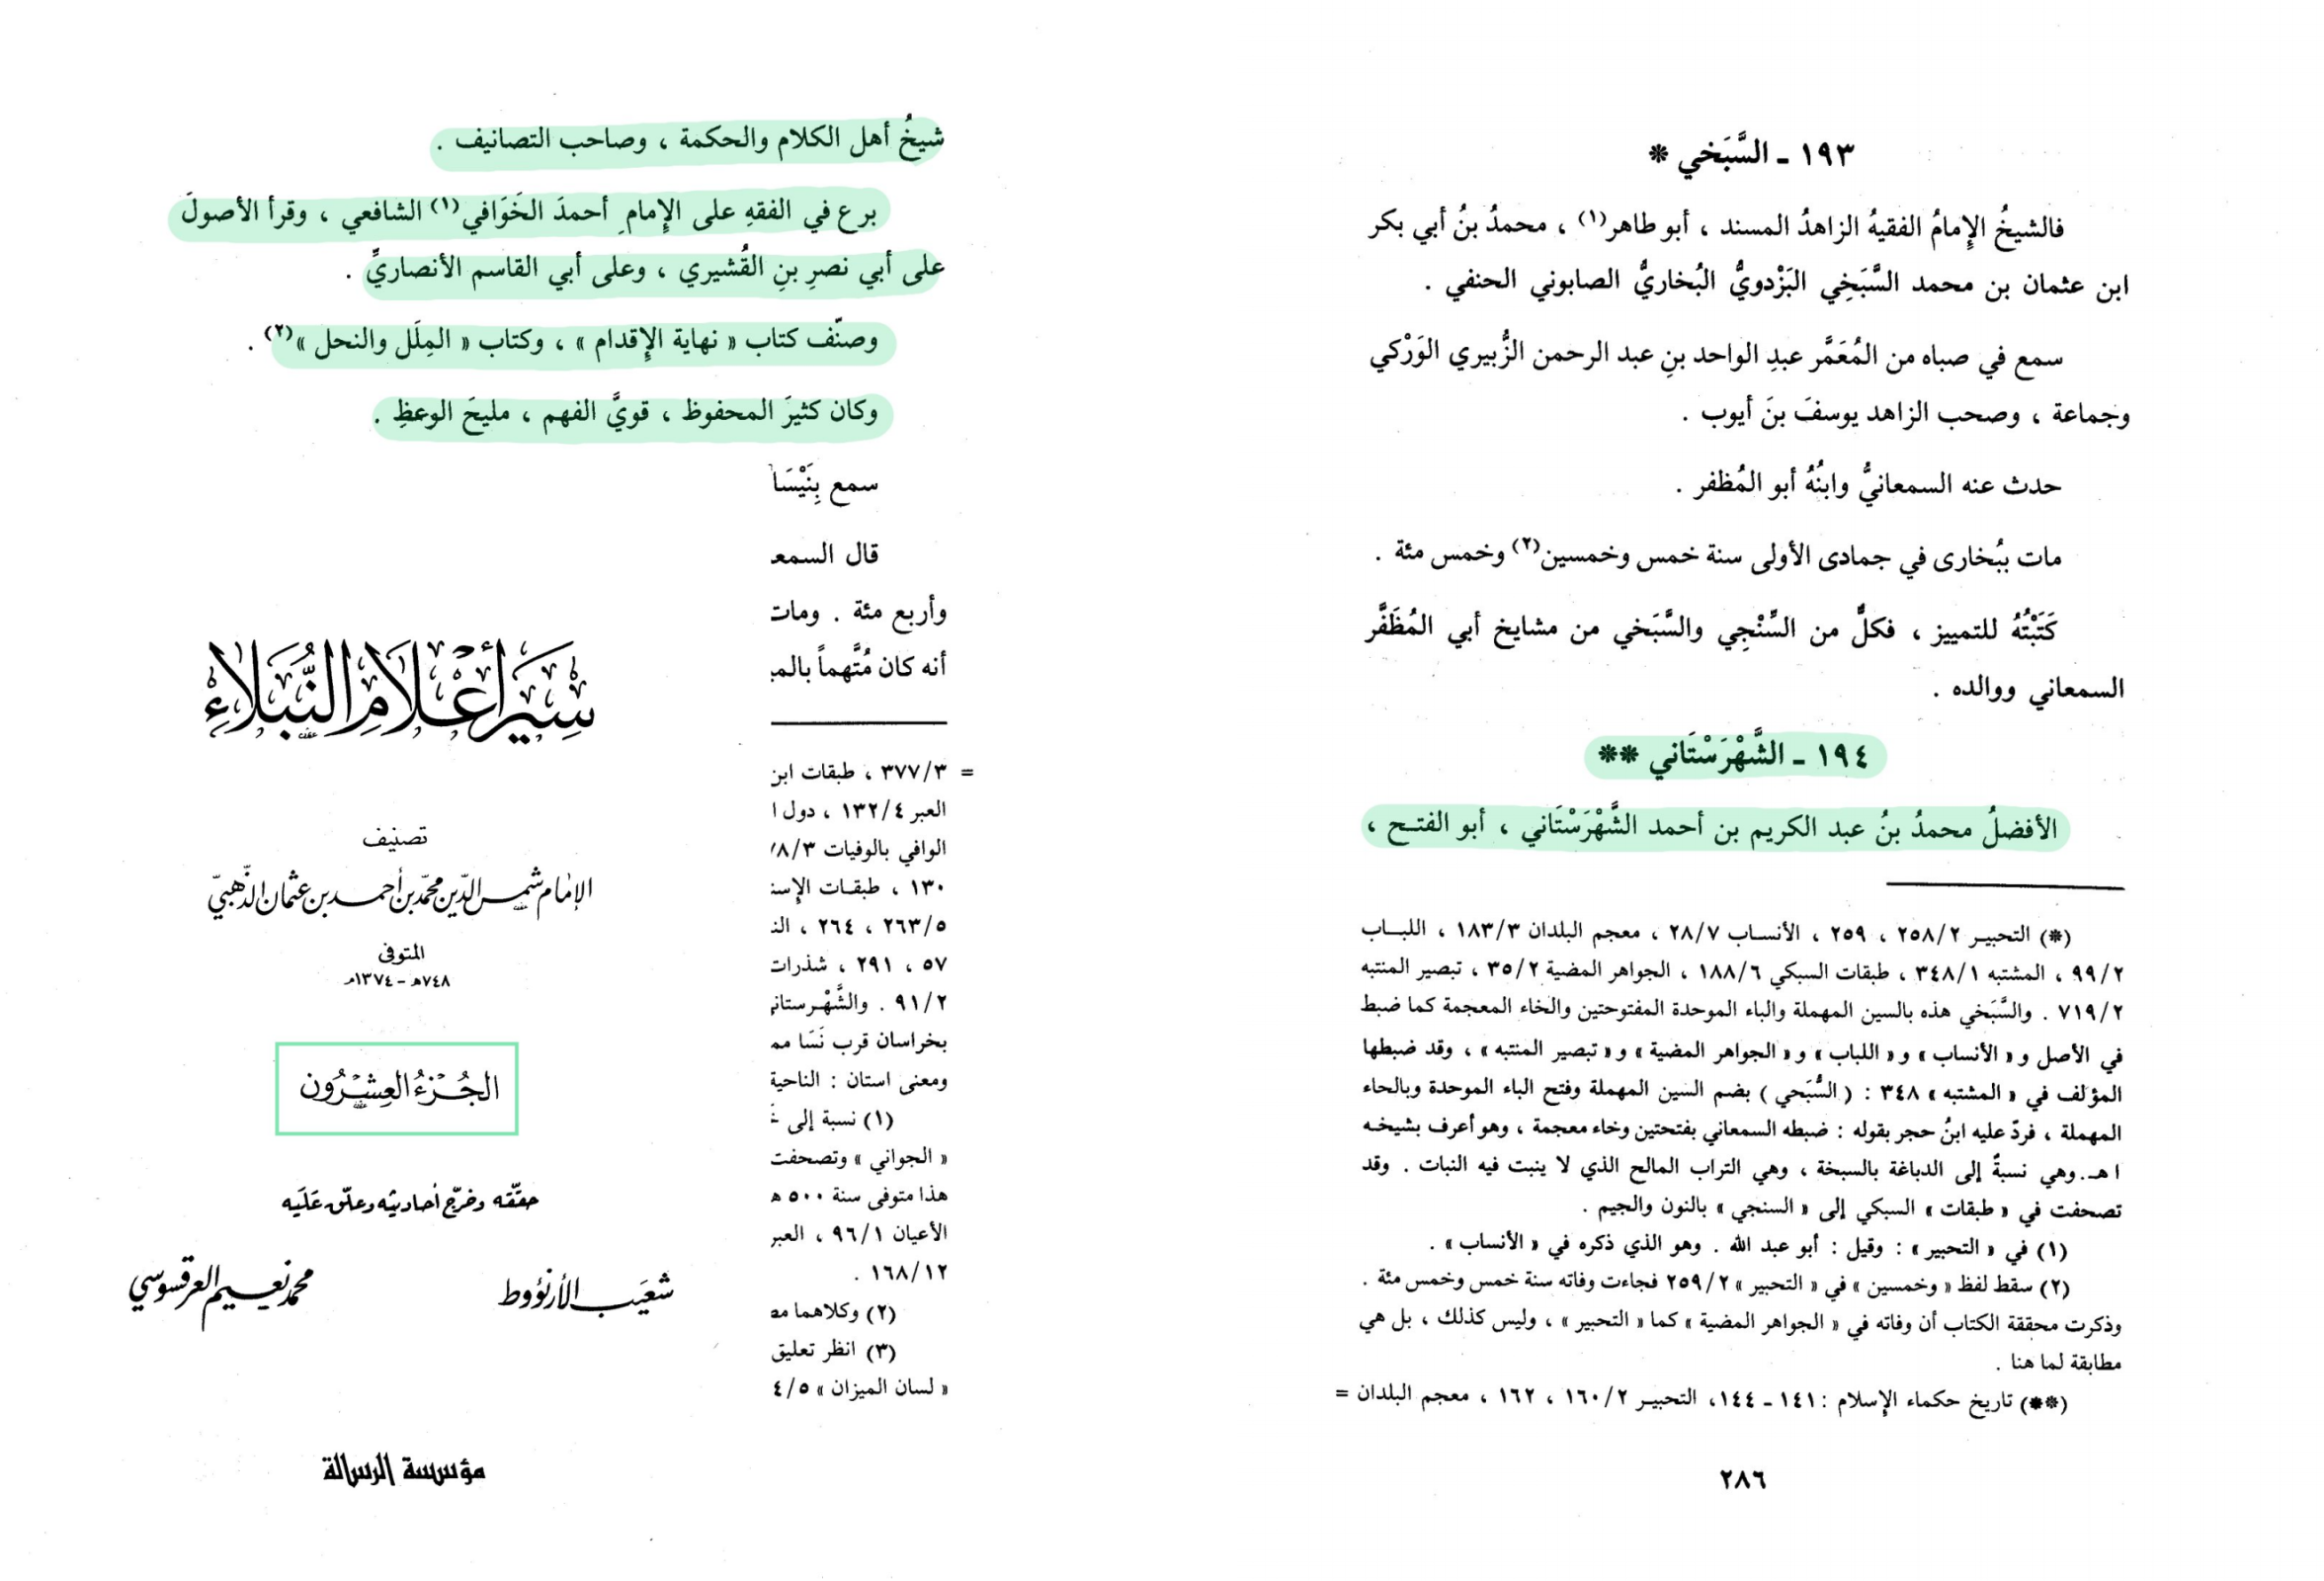 ١٩٣ ـ السَّبَخي *
فالشيخُ الإِمامُ الفقيهُ الزاهدُ المسند ، أبو طاهر(١) ، محمدُ بنُ أبي بكر
ابن عثمان بن محمد السَّبَخِي البَزْدويُّ البُخاريُّ الصابوني الحنفي .
سمع في صباه من المُعَمَّر عبدِ الواحد بنِ عبد الرحمن الزُّبيري الوَرْكي
وجماعة ، وصحب الزاهد يوسفَ بنَ أيوب .
حدث عنه السمعانيُّ وابنُهُ أبو المُظفر .
مات ببُخارى في جمادى الأولى سنة خمس وخمسين(٢) وخمس مئة .
كَتَبْتُهُ للتمييز ، فكلٌّ من السِّنْجِي والسَّبَخي من مشايخ أبي المُظَفَّر
السمعاني ووالده .
١٩٤ ـ الشَّهْرَسْتَاني **
الأفضلُ محمدُ بنُ عبد الكريم بن أحمد الشَّهْرَسْتَاني ، أبو الفتـح ،
(*) التحبيـر ٢٥٨/٢ ، ٢٥٩ ، الأنسـاب ٢٨/٧ ، معجم البلدان ١٨٣/٣ ، اللبـاب
٩٩/٢ ، المشتبه ٣٤٨/١ ، طبقات السبكي ١٨٨/٦ ، الجواهر المضية ٣٥/٢ ، تبصير المنتبه
٧١٩/٢ . والسَّبَخي هذه بالسين المهملة والباء الموحدة المفتوحتين والخاء المعجمة كما ضبط
في الأصل و « الأنساب » و « اللباب » و « الجواهر المضية » و « تبصير المنتبه » ، وقد ضبطها
المؤلف في « المشتبه » ٣٤٨ : ( السُّبَحي ) بضم السين المهملة وفتح الباء الموحدة وبالحاء
المهملة ، فردّ عليه ابنُ حجر بقوله : ضبطه السمعاني بفتحتين وخاء معجمة ، وهو أعرف بشيخـه
ا هـ. وهي نسبةٌ إلى الدباغة بالسبخة ، وهي التراب المالح الذي لا ينبت فيه النبات . وقد
تصحفت في « طبقات » السبكي إلى « السنجي » بالنون والجيم .
(١) في « التحبير » : وقيل : أبو عبد الله . وهو الذي ذكره في « الأنساب » .
(٢) سقط لفظ « وخمسين » في « التحبير » ٢٥٩/٢ فجاءت وفاته سنة خمس وخمس مئة .
وذكرت محققة الكتاب أن وفاته في « الجواهر المضية » كما « التحبير » ، وليس كذلك ، بل هي
مطابقة لما هنا .
(**) تاريخ حكماء الإِسلام : ١٤١ ـ ١٤٤، التحبيـر ١٦٠/٢ ، ١٦٢ ، معجم البلدان =
٢٨٦
شيخُ أهل الكلام والحكمة ، وصاحب التصانيف .
برع في الفقهِ على الإِمامِ أحمدَ الخَوَافي(١) الشافعي ، وقرأ الأصولَ
على أبي نصرِ بنِ القُشيري ، وعلى أبي القاسم الأنصاريِّ .
وصنّف كتاب « نهاية الإِقدام » ، وكتاب « المِلَل والنحل »(٢) .
وكان كثيرَ المحفوظ ، قويَّ الفهم ، مليحَ الوعظِ .
سمع بِنَيْسَا
قال السمعـ
وأربع مئة . ومات
أنه كان مُتَّهماً بالميـ
= ٣٧٧/٣ ، طبقات ابن
العبر ١٣٢/٤ ، دول ا
الوافي بالوفيات ٧٨/٣
١٣٠ ، طبقـات الإِسنـ
٢٦٣/٥ ، ٢٦٤ ، النـ
٥٧ ، ٢٩١ ، شذرات
٩١/٢ . والشَّهْـرستانـ
بخراسان قرب نَسَا ممـ
ومعنى استان : الناحية
(١) نسبة إلى خَـ
« الجواني » وتصحفت
هذا متوفى سنة ٥٠٠ هـ
الأعيان ٩٦/١ ، العبر
١٦٨/١٢ .
(٢) وكلاهما مطـ
(٣) انظر تعليق
« لسان الميزان » ٤/٥
سِيَر أَعْلَامِ النُّبَلَاءِ
تصنيف
الإمام شمس الدين محمد بن أحمد بن عثمان الذهبيّ
المتوفى
٧٤٨هـ - ١٣٧٤م
الجُزءُ العِشرُون
حقّقه وخرّج أحاديثه وعلّق عَلَيه
شعَيب الأرنؤوط
محمد نعيم العرقسوسي
مؤسسة الرسالة